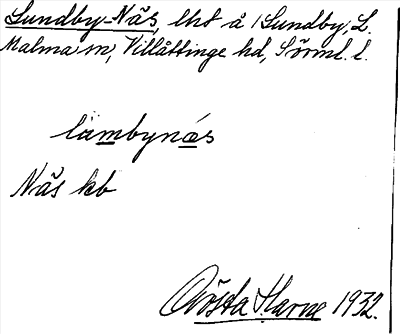 Lundby-Näs, lht å Lundby, L.
Malma sn, Villåttinge hd, Sörml. l.
lambynäs
Näs kb
Gösta 1932.